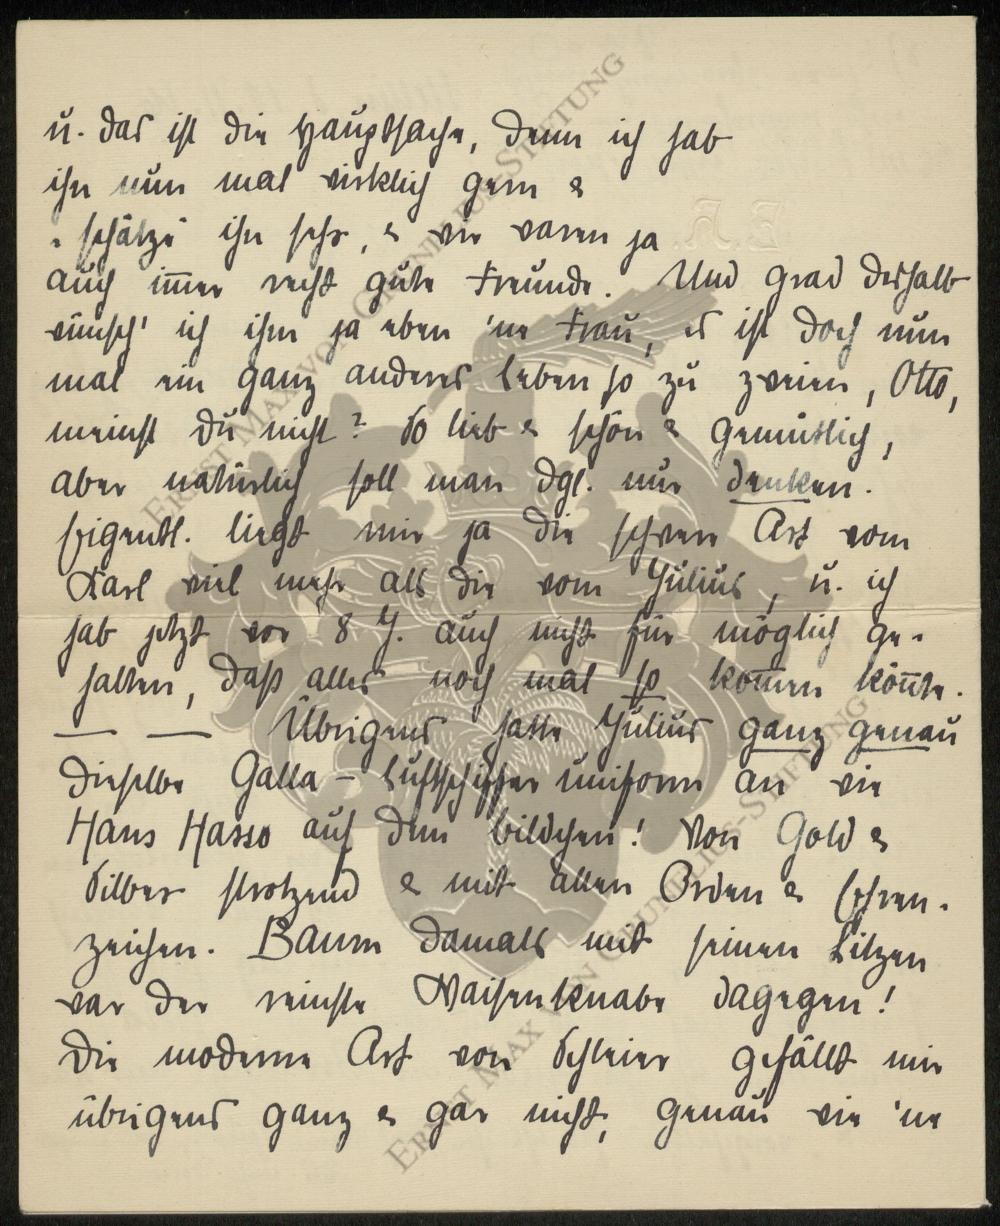 u. das ist die Hauptsache, denn ich hab
ihn nun mal wirklich gern &
schätze ihn sehr, & wir waren ja
auch im̅er recht gute Freunde. Und grad deshalb
wünsch' ich ihm ja eben 'ne Frau, es ist doch nun
mal ein ganz anderes Leben so zu zweien, Otto,
meinst Du nicht? So lieb & schön & gemütlich,
aber natürlich soll man dgl. nur denken.
Eigentl. liegt mir ja die schwere Art vom
Karl viel mehr als die vom Julius, u. ich
hab jetzt vor 8 J. auch nicht für möglich ge-
halten, daß alles noch mal so kom̅en kön̅te.
— — Übrigens hatte Julius ganz genau
dieselbe Galla-Luftschifferuniform an wie
Hans Hasso auf dem Bildchen! Von Gold &
Silber strotzend & mit allen Orden & Ehren-
zeichen. Baum damals mit seinen Litzen
war der reinste Waisenknabe dagegen!
Die moderne Art von Schleier gefällt mir
übrigens ganz & gar nicht, genau wie 'ne
E.H.
ERNST MAX VON GRUNELIUS-STIFTUNG
ERNST MAX VON GRUNELIUS-STIFTUNG